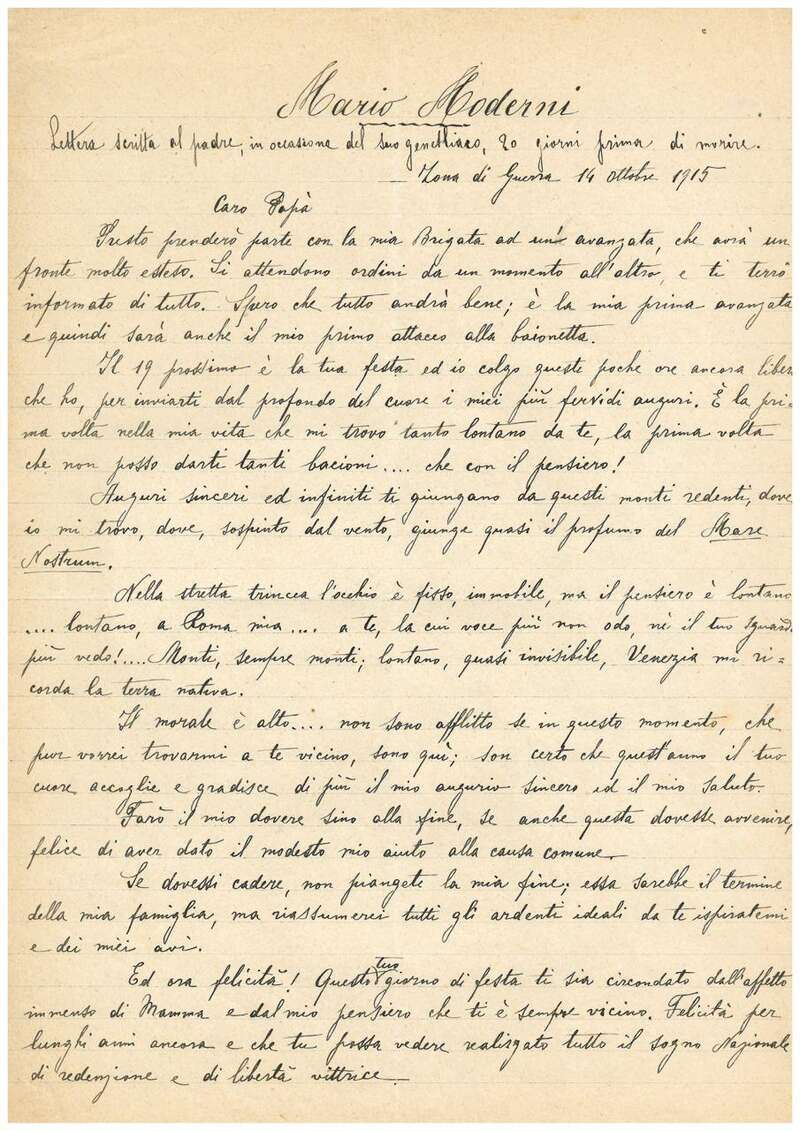 Mario Moderni
Lettera scritta al padre, in occasione del suo genetliaco, 20 giorni prima di morire.
— Zona di Guerra 14 Ottobre 1915
Caro Papà
Presto prenderò parte con la mia Brigata ad un'avanzata, che avrà un
fronte molto esteso. Si attendono ordini da un momento all'altro, e ti terrò
informato di tutto. Spero che tutto andrà bene; è la mia prima avanzata
e quindi sarà anche il mio primo attacco alla baionetta.
Il 19 prossimo è la tua festa ed io colgo queste poche ore ancora libere
che ho, per inviarti dal profondo del cuore i miei più fervidi auguri. È la pri-
ma volta nella mia vita che mi trovo tanto lontano da te, la prima volta
che non posso darti tanti bacioni .... che con il pensiero!
Auguri sinceri ed infiniti ti giungano da questi monti redenti, dove
io mi trovo, dove, sospinto dal vento, giunge quasi il profumo del Mare
Nostrum.
Nella stretta trincea l'occhio è fisso, immobile, ma il pensiero è lontano
.... lontano, a Roma mia .... a te, la cui voce più non odo, nè il tuo sguardo
più vedo! .... Monti, sempre monti; lontano, quasi invisibile, Venezia mi ri-
corda la terra nativa.
Il morale è alto .... non sono afflitto se in questo momento, che
pur vorrei trovarmi a te vicino, sono quì; son certo che quest'anno il tuo
cuore accoglie e gradisce di più il mio augurio sincero ed il mio saluto.
Farò il mio dovere sino alla fine, se anche questa dovesse avvenire,
felice di aver dato il modesto mio aiuto alla causa comune.
Se dovessi cadere, non piangete la mia fine; essa sarebbe il termine
della mia famiglia, ma riassumerei tutti gli ardenti ideali da te ispiratemi
e dei miei avi.
Ed ora felicità! Questo tuo giorno di festa ti sia circondato dall'affetto
immenso di Mamma e dal mio pensiero che ti è sempre vicino. Felicità per
lunghi anni ancora e che tu possa vedere realizzato tutto il sogno Nazionale
di redenzione e di libertà vittrice.